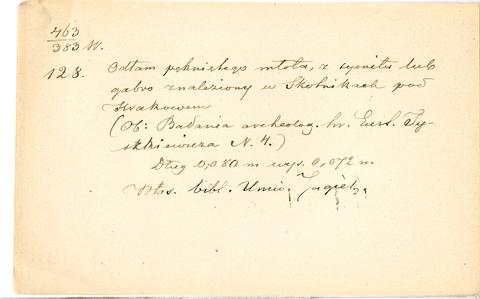 463
383 W.
128. Odłam pękniętego młota, z syenitu lub
gabro znaleziony w Skotnikach pod
Krakowem
(Ob: Badania archeolog. hr. Eust. Ty-
szkiewicza N. 4.)
Dług 0,080 m wys. 0,072 m
Włas. bibl. Uniw. Jagiell.